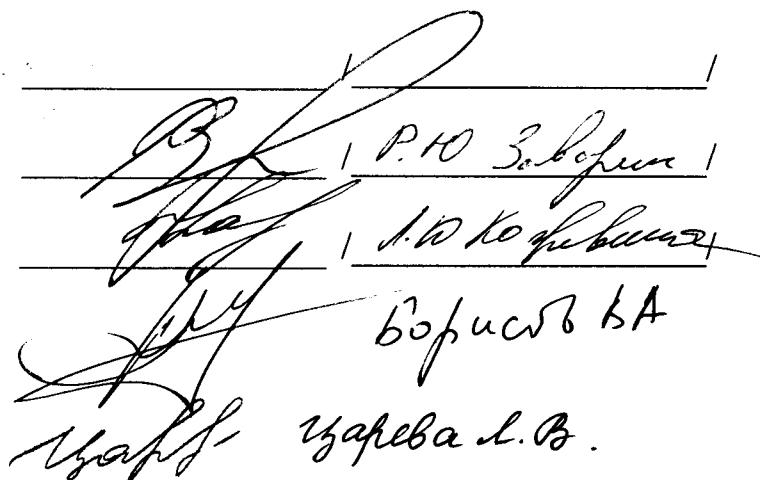 / /
/ Р.Ю Заворин /
/ Л.Ю Козревина /
Борисов ВА
Царева Л.В.